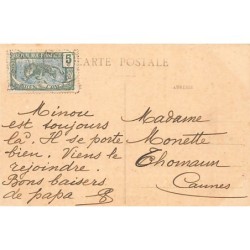 CARTE POSTALE
5
Minou
est toujours
là. Il se porte
bien. Viens le
rejoindre.
Bons baisers
de papa
Madame
Monette
Thomaun
Cannes